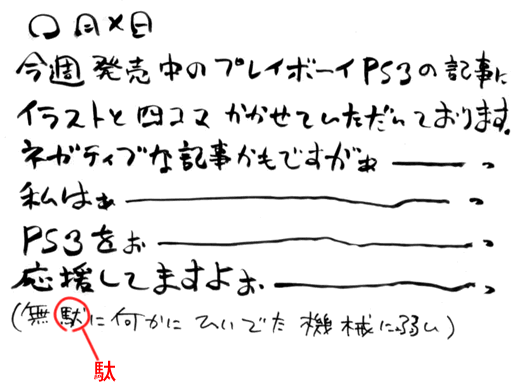 〇月×日
今週発売中のプレイボーイPS3の記事に
イラストと四コマかかせていただいております。
ネガティブな記事かもですがぁ――っ
私はぁ――――っ
PS3をぉ――――っ
応援してますよぉ――――っ
(無駄に何かにひいでた機械に弱い)
駄